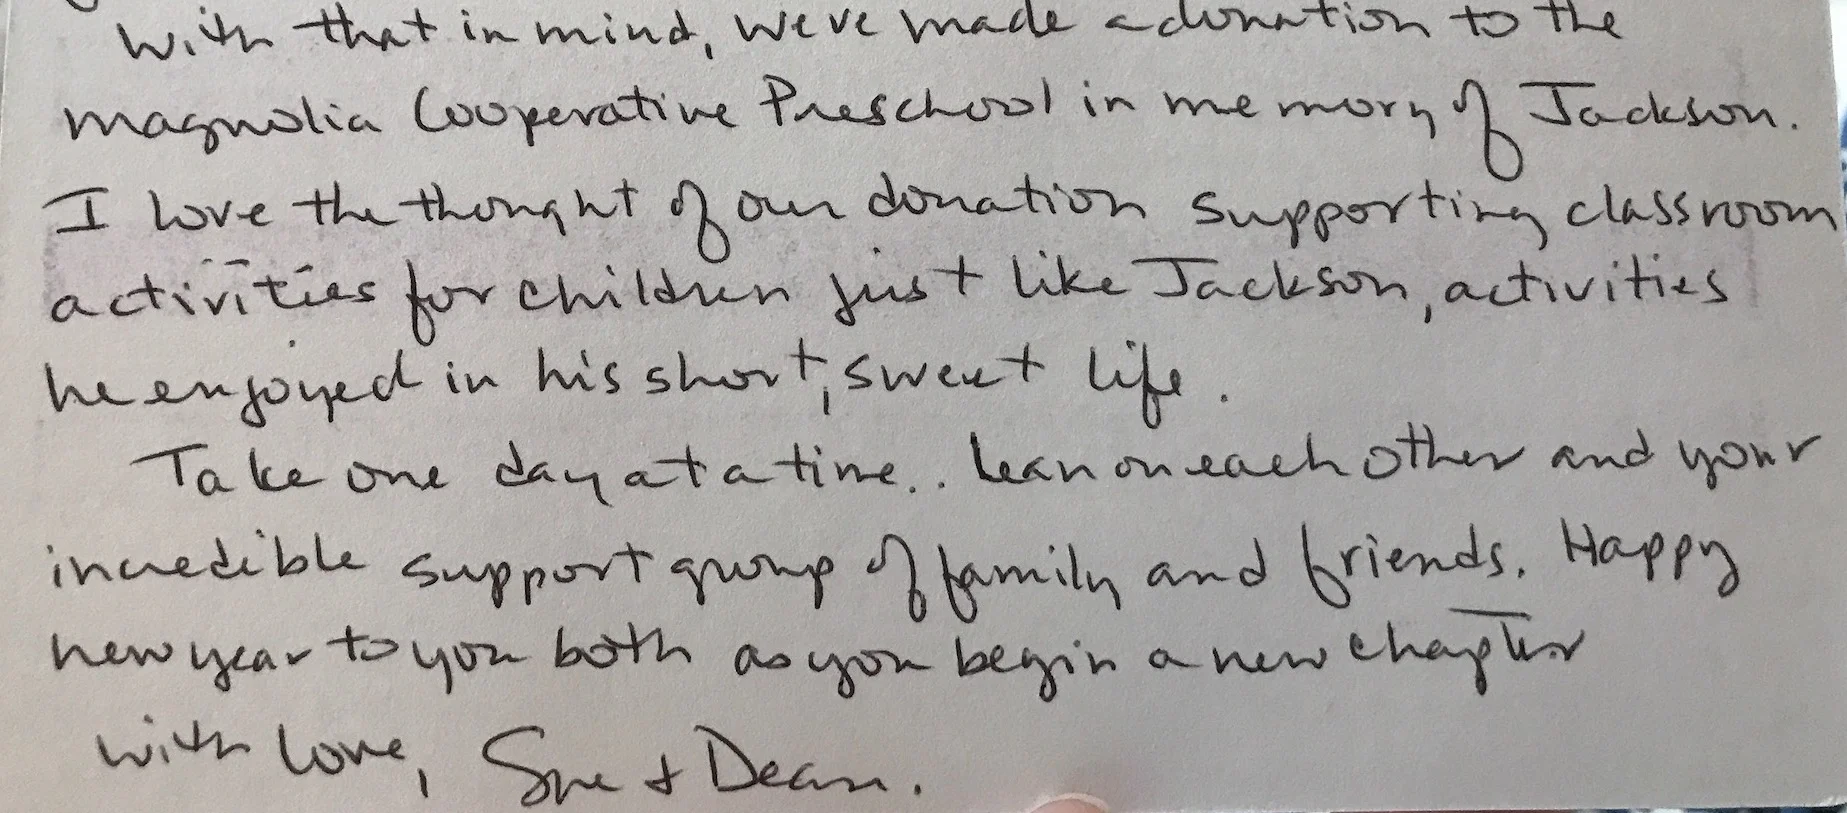 with that in mind, we've made a donation to the
magnolia Cooperative Preschool in memory of Jackson.
I love the thought of our donation supporting classroom
activities for children just like Jackson, activities
he enjoyed in his short, sweet life.
Take one day at a time.. lean on each other and your
incredible support group of family and friends. Happy
new year to you both as you begin a new chapter
with love, Sue + Dean.